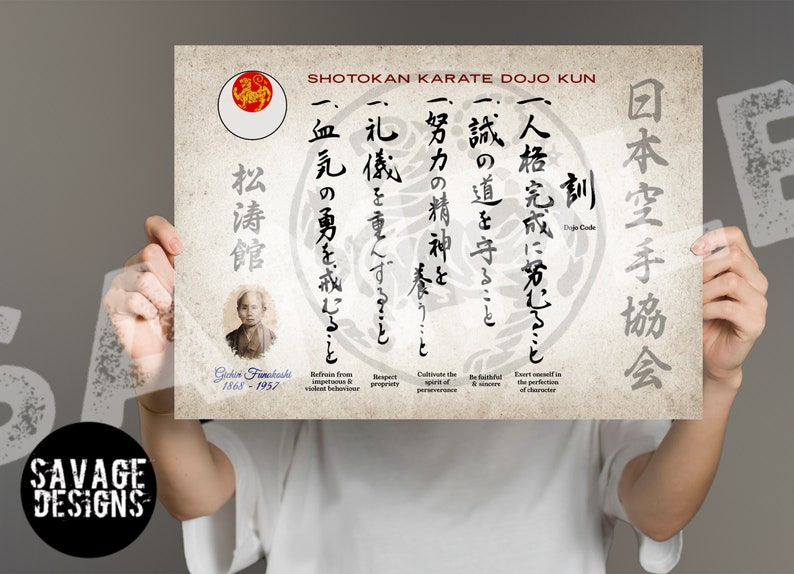 SHOTOKAN KARATE DOJO KUN
日本空手協会
訓
Dojo Code
一、人格完成に努むること
一、誠の道を守ること
一、努力の精神を養うこと
一、礼儀を重んずること
一、血気の勇を戒むること
松涛館
Gichin Funakoshi
1868 - 1957
Refrain from
impetuous &
violent behaviour
Respect
propriety
Cultivate the
spirit of
perseverance
Be faithful
& sincere
Exert oneself in
the perfection
of character
SAVAGE
DESIGNS